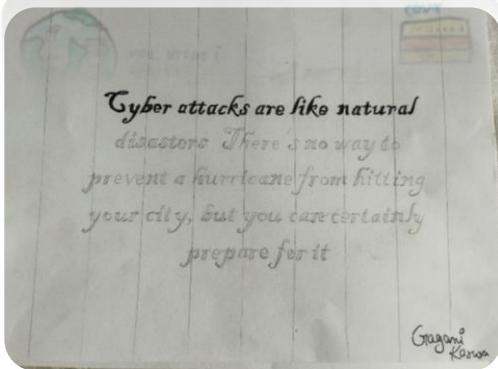 Cyber attacks are like natural
disasters There s no way to
prevent a hurricane from hitting
your city, but you can certainly
prepare for it
Gagani